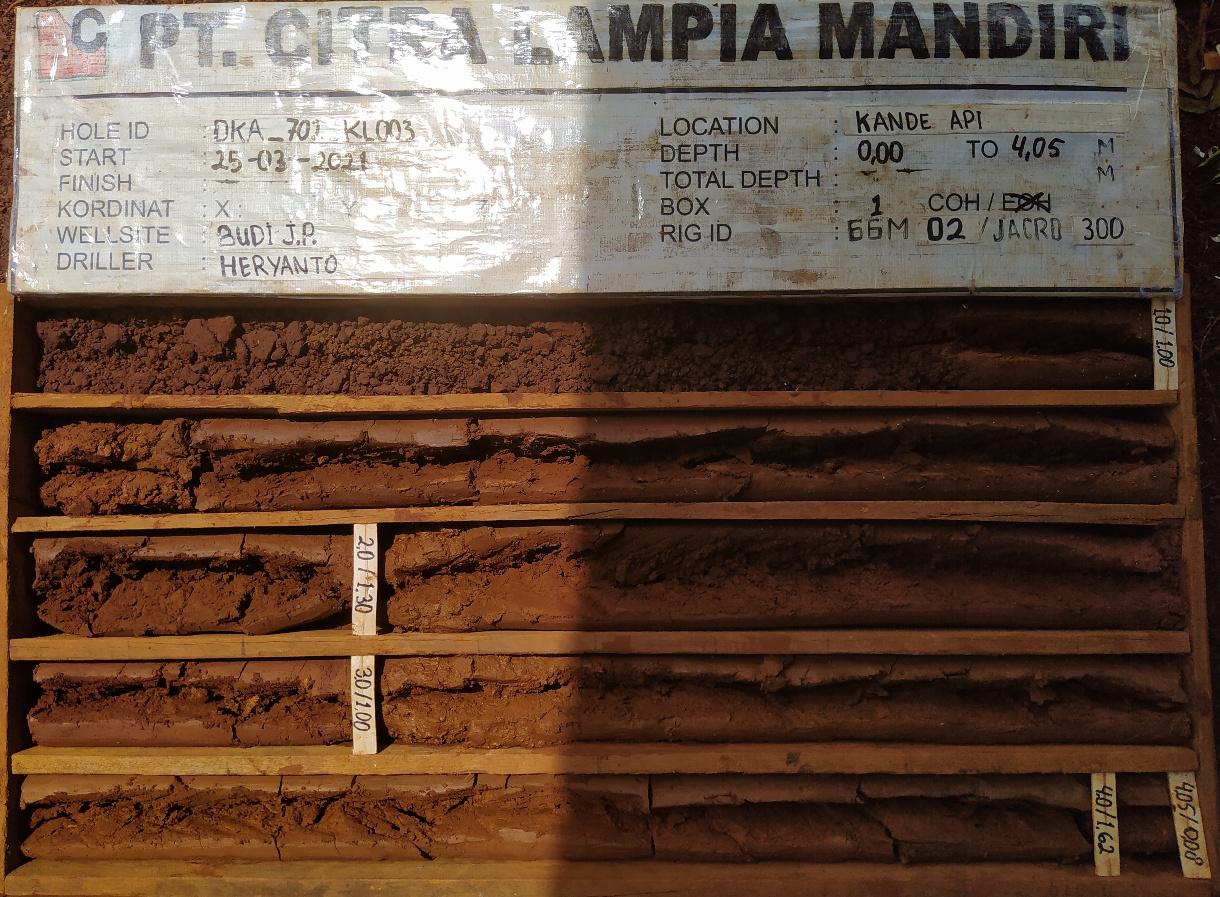 PT. CITRA LAMPIA MANDIRI
HOLE ID : DKA_701_KL003
START : 25-03-2021
FINISH : -
KORDINAT : X : Y Z
WELLSITE : BUDI J.P.
DRILLER : HERYANTO
LOCATION : KANDE API
DEPTH : 0,00 TO 4,05 M
TOTAL DEPTH : M
BOX : 1 COH / EOH
RIG ID : GGM 02 / JACRO 300
1.0/1.00
2.0/1.30
3.0/1.00
4.0/1.62
4.05/0.08